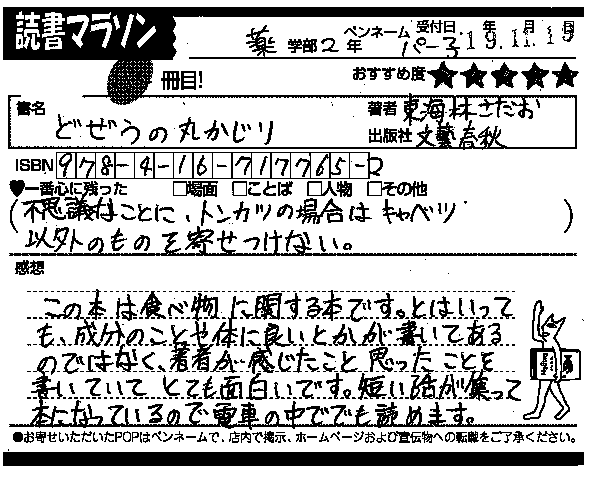 読書マラソン
薬 学部 2 年 ペンネーム パー子 受付日 19年11月19日
冊目! おすすめ度 ★★★★★
書名 どぜうの丸かじり 著者 東海林さだお
出版社 文藝春秋
ISBN 978-4-16-717765-2
♥一番心に残った □場面 □ことば □人物 □その他
(不思議なことに、トンカツの場合はキャベツ
以外のものを寄せつけない。)
感想
この本は食べ物に関する本です。とはいって
も、成分のことや体に良いとかが書いてある
のではなく、著者が感じたこと思ったことを
書いていてとても面白いです。短い話が集って
本になっているので電車の中ででも読めます。
●お寄せいただいたPOPはペンネームで、店内で掲示、ホームページおよび宣伝物への転載をご了承ください。